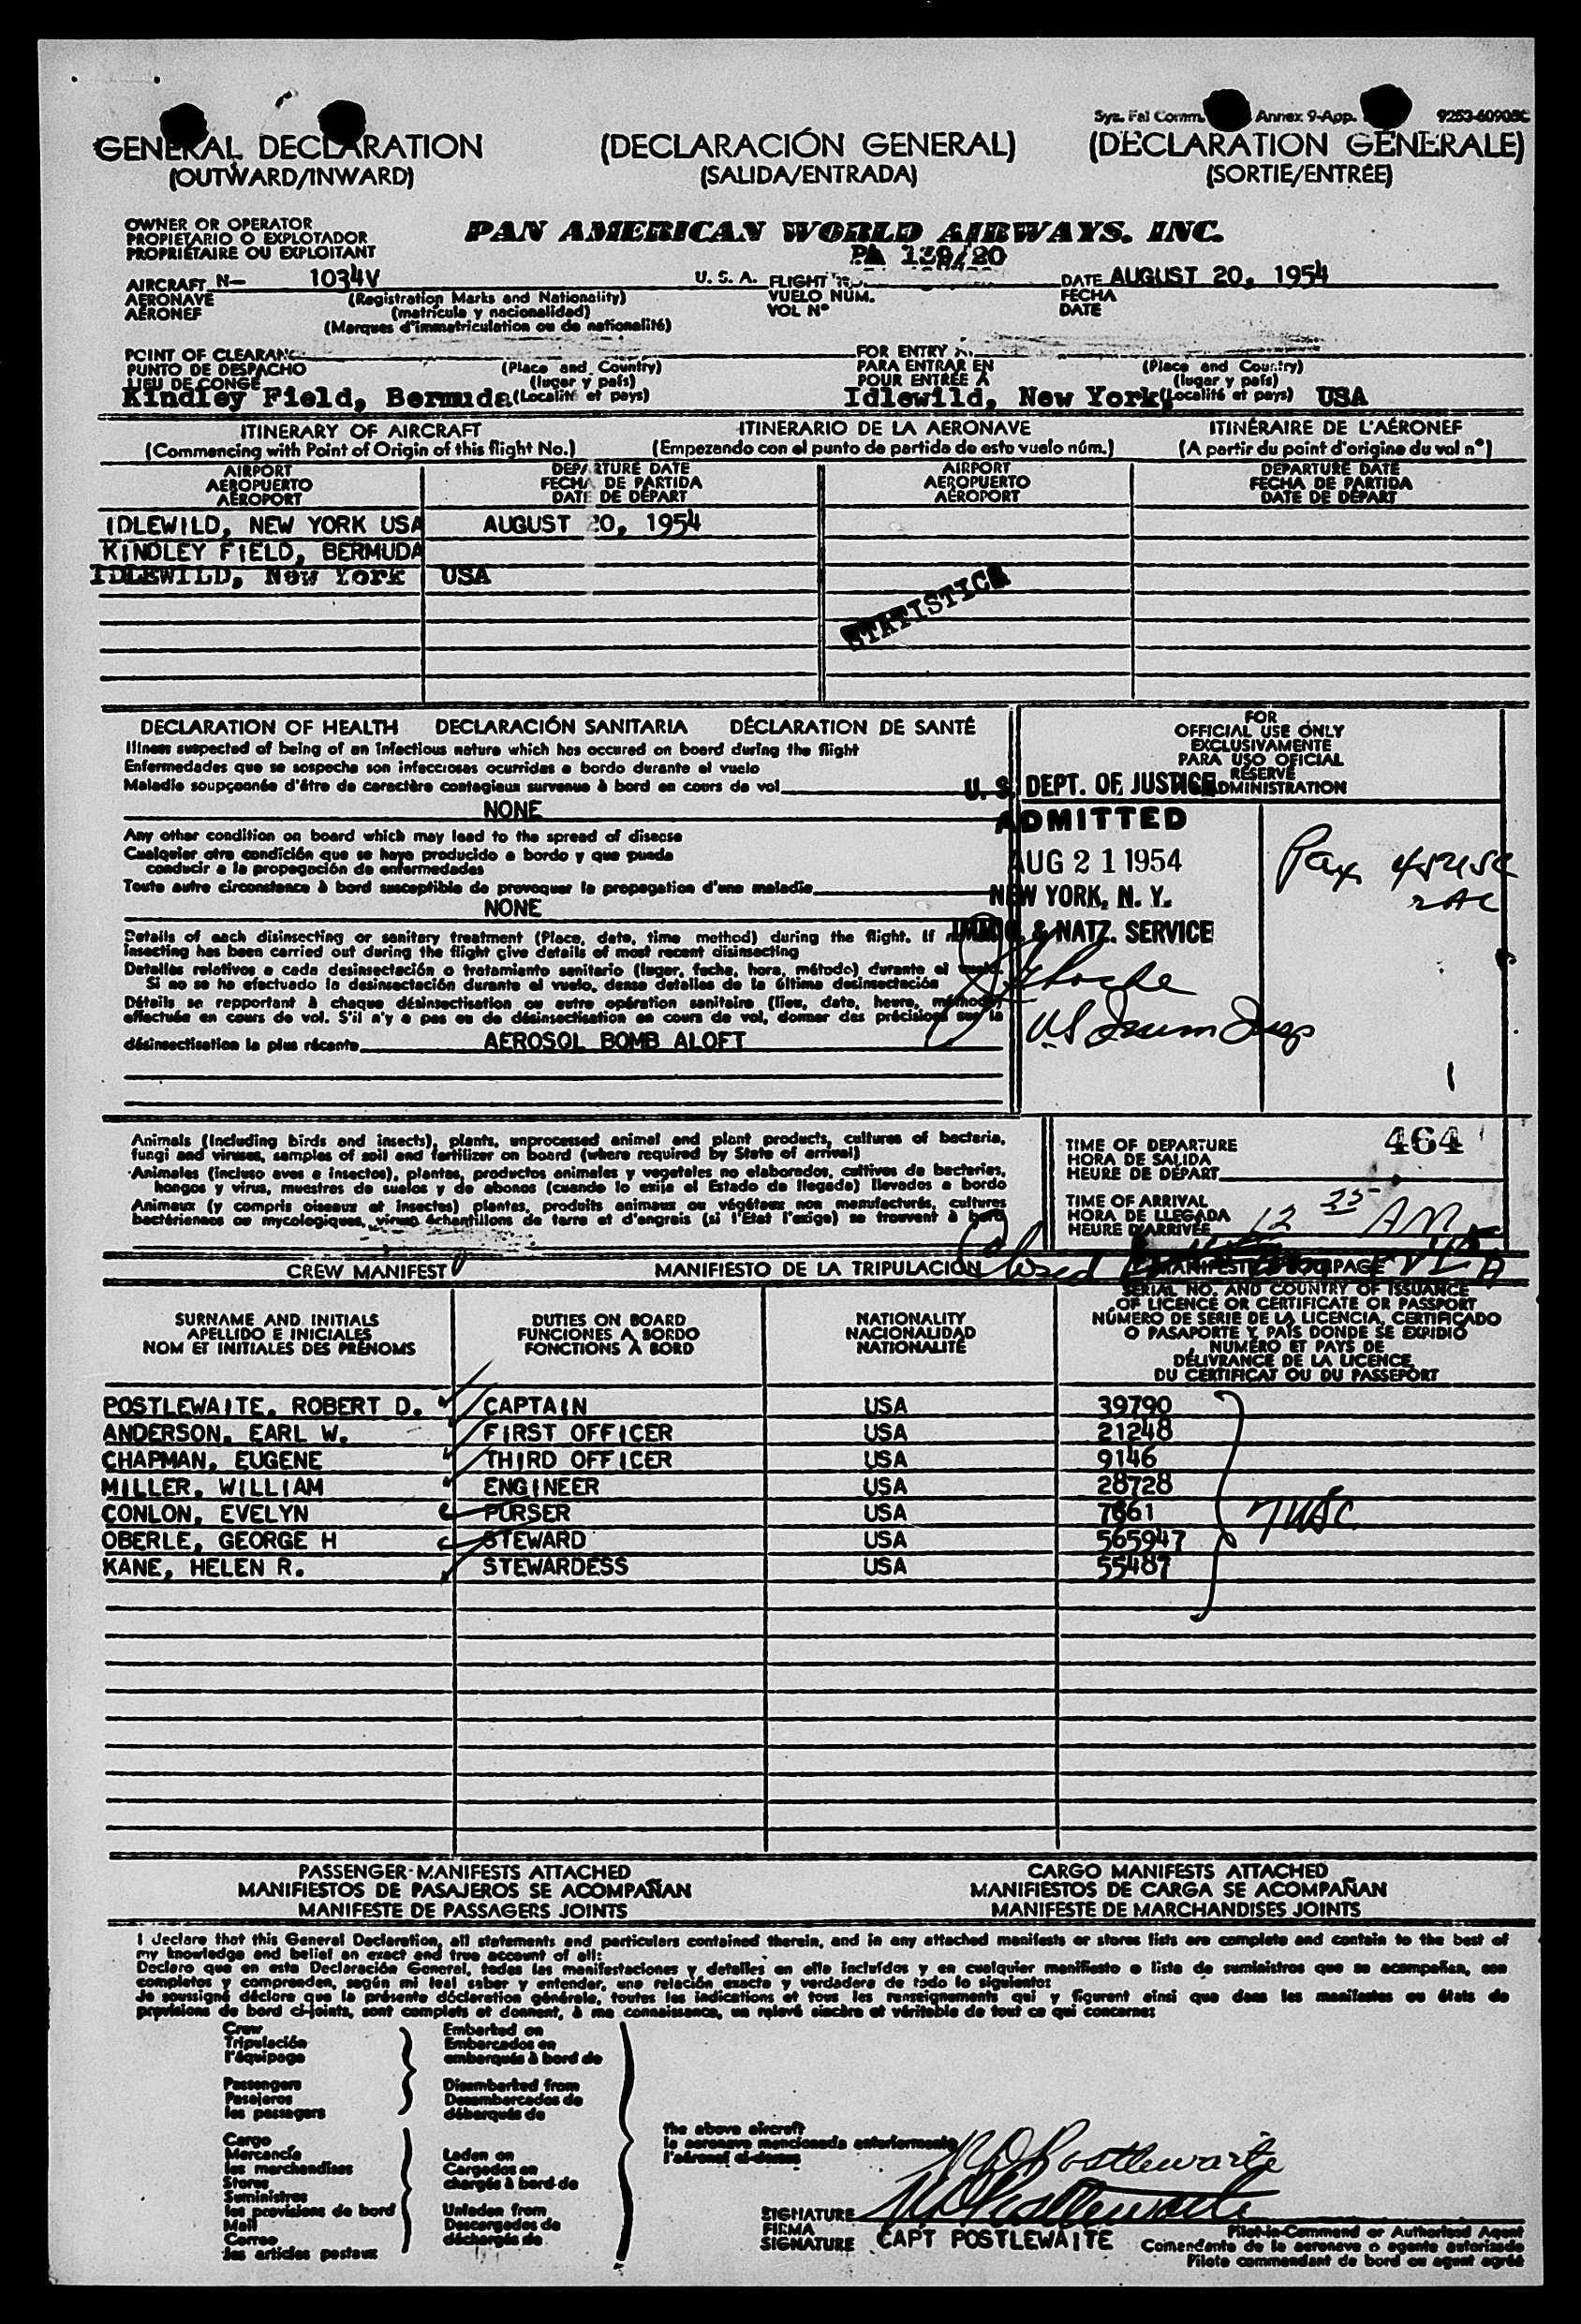 Sys. Fal Comm. Annex 9-App. 9253-60905C
GENERAL DECLARATION (DECLARACIÓN GENERAL) (DÉCLARATION GÉNÉRALE)
(OUTWARD/INWARD) (SALIDA/ENTRADA) (SORTIE/ENTRÉE)
OWNER OR OPERATOR
PROPIETARIO O EXPLOTADOR
PROPRIÉTAIRE OU EXPLOITANT
PAN AMERICAN WORLD AIRWAYS, INC.
PA 139/20
AIRCRAFT N— 1034V U. S. A. FLIGHT DATE AUGUST 20, 1954
AERONAVE (Registration Marks and Nationality) VUELO NÚM. FECHA
AÉRONEF (matrícula y nacionalidad) VOL Nº DATE
(Marques d'immatriculation ou de nationalité)
POINT OF CLEARANCE FOR ENTRY
PUNTO DE DESPACHO (Place and Country) PARA ENTRAR EN (Place and Country)
LIEU DE CONGÉ (lugar y país) POUR ENTRÉE À (lugar y país)
Kindley Field, Bermuda (Localité et pays) Idlewild, New York, (Localité et pays) USA
ITINERARY OF AIRCRAFT ITINERARIO DE LA AERONAVE ITINÉRAIRE DE L'AÉRONEF
(Commencing with Point of Origin of this flight No.) (Empezando con el punto de partida de esto vuelo núm.) (A partir du point d'origine du vol nº)
AIRPORT DEPARTURE DATE AIRPORT DEPARTURE DATE
AEROPUERTO FECHA DE PARTIDA AEROPUERTO FECHA DE PARTIDA
AÉROPORT DATE DE DÉPART AÉROPORT DATE DE DÉPART
IDLEWILD, NEW YORK USA AUGUST 20, 1954
KINDLEY FIELD, BERMUDA
IDLEWILD, New York USA
STATISTICS
DECLARATION OF HEALTH DECLARACIÓN SANITARIA DÉCLARATION DE SANTÉ
Illness suspected of being of an infectious nature which has occured on board during the flight
Enfermedades que se sospecha son infecciosas ocurridas a bordo durante el vuelo
Maladie soupçonnée d'être de caractère contagieux survenue à bord en cours de vol
NONE
Any other condition on board which may lead to the spread of disease
Cualquier otra condición que se haya producido a bordo y que pueda
conducir a la propagación de enfermedades
Toute autre circonstance à bord susceptible de provoquer la propagation d'une maladie
NONE
Details of each disinsecting or sanitary treatment (Place, date, time method) during the flight. If no
insecting has been carried out during the flight give details of most recent disinsecting
Detalles relativos a cada desinsectación o tratamiento sanitario (lugar, fecha, hora, método) durante el vuelo.
Si no se ha efectuado la desinsectación durante el vuelo, dense detalles de la última desinsectación
Détails se rapportant à chaque désinsectisation ou autre opération sanitaire (lieu, date, heure, méthode)
effectuée en cours de vol. S'il n'y a pas eu de désinsectisation en cours de vol, donner des précisions sur la
désinsectisation la plus récente AEROSOL BOMB ALOFT
FOR
OFFICIAL USE ONLY
EXCLUSIVAMENTE
PARA USO OFICIAL
RÉSERVÉ
ADMINISTRATION
U. S. DEPT. OF JUSTICE
ADMITTED
AUG 21 1954
NEW YORK, N. Y.
IMMIG. & NATZ. SERVICE
Pax 45 USC
2 AC
US Immig Insp
Animals (including birds and insects), plants, unprocessed animal and plant products, cultures of bacteria,
fungi and viruses, samples of soil and fertilizer on board (where required by State of arrival)
Animales (incluso aves e insectos), plantas, productos animales y vegetales no elaborados, cultivos de bacterias,
hongos y virus, muestras de suelos y de abonos (cuando lo exija el Estado de llegada) llevados a bordo
Animaux (y compris oiseaux et insectes) plantes, produits animaux ou végétaux non manufacturés, cultures
bactériennes ou mycologiques, virus, échantillons de terre et d'engrais (si l'Etat l'exige) se trouvent à bord
TIME OF DEPARTURE 464
HORA DE SALIDA
HEURE DE DÉPART
TIME OF ARRIVAL
HORA DE LLEGADA 12 25 AM
HEURE D'ARRIVÉE
CREW MANIFEST MANIFIESTO DE LA TRIPULACIÓN MANIFESTE
SURNAME AND INITIALS
APELLIDO E INICIALES
NOM ET INITIALES DES PRÉNOMS
DUTIES ON BOARD
FUNCIONES A BORDO
FONCTIONS À BORD
NATIONALITY
NACIONALIDAD
NATIONALITÉ
SERIAL NO. AND COUNTRY OF ISSUANCE
OF LICENCE OR CERTIFICATE OR PASSPORT
NÚMERO DE SERIE DE LA LICENCIA, CERTIFICADO
O PASAPORTE Y PAÍS DONDE SE EXPIDIÓ
NUMÉRO ET PAYS DE
DÉLIVRANCE DE LA LICENCE,
DU CERTIFICAT OU DU PASSEPORT
POSTLEWAITE, ROBERT D. CAPTAIN USA 39790
ANDERSON, EARL W. FIRST OFFICER USA 21248
CHAPMAN, EUGENE THIRD OFFICER USA 9146
MILLER, WILLIAM ENGINEER USA 28728
CONLON, EVELYN PURSER USA 7661 7 USC
OBERLE, GEORGE H STEWARD USA 565947
KANE, HELEN R. STEWARDESS USA 55487
PASSENGER MANIFESTS ATTACHED CARGO MANIFESTS ATTACHED
MANIFIESTOS DE PASAJEROS SE ACOMPAÑAN MANIFIESTOS DE CARGA SE ACOMPAÑAN
MANIFESTE DE PASSAGERS JOINTS MANIFESTE DE MARCHANDISES JOINTS
I declare that this General Declaration, all statements and particulars contained therein, and in any attached manifests or stores lists are complete and contain to the best of
my knowledge and belief an exact and true account of all:
Declaro que en esta Declaración General, todas las manifestaciones y detalles en ella incluídos y en cualquier manifiesto o lista de suministros que se acompañan, son
completos y comprenden, según mi leal saber y entender, una relación exacta y verdadera de todo lo siguiente:
Je soussigné déclare que la présente déclaration générale, toutes les indications et tous les renseignements qui y figurent ainsi que dans les manifestes ou états de
provisions de bord ci-joints, sont complets et donnent, à ma connaissance, un relevé sincère et véritable de tout ce qui concerne:
Crew Embarked on
Tripulación Embarcados en
l'équipage embarqués à bord de
Passengers Disembarked from
Pasajeros Desembarcados de
les passagers débarqués de
Cargo
Mercancía Laden on
les marchandises Cargados en
Stores chargés à bord de
Suministros
les provisions de bord Unladen from
Mail Descargados de
Correo déchargés de
les articles postaux
the above aircraft
la aeronave mencionada anteriormente
l'aéronef ci-dessus
RD Postlewaite
SIGNATURE RD Postlewaite
FIRMA
SIGNATURE CAPT POSTLEWAITE
Pilot-in-Command or Authorized Agent
Comandante de la aeronave o agente autorizado
Pilote commandant de bord ou agent agréé